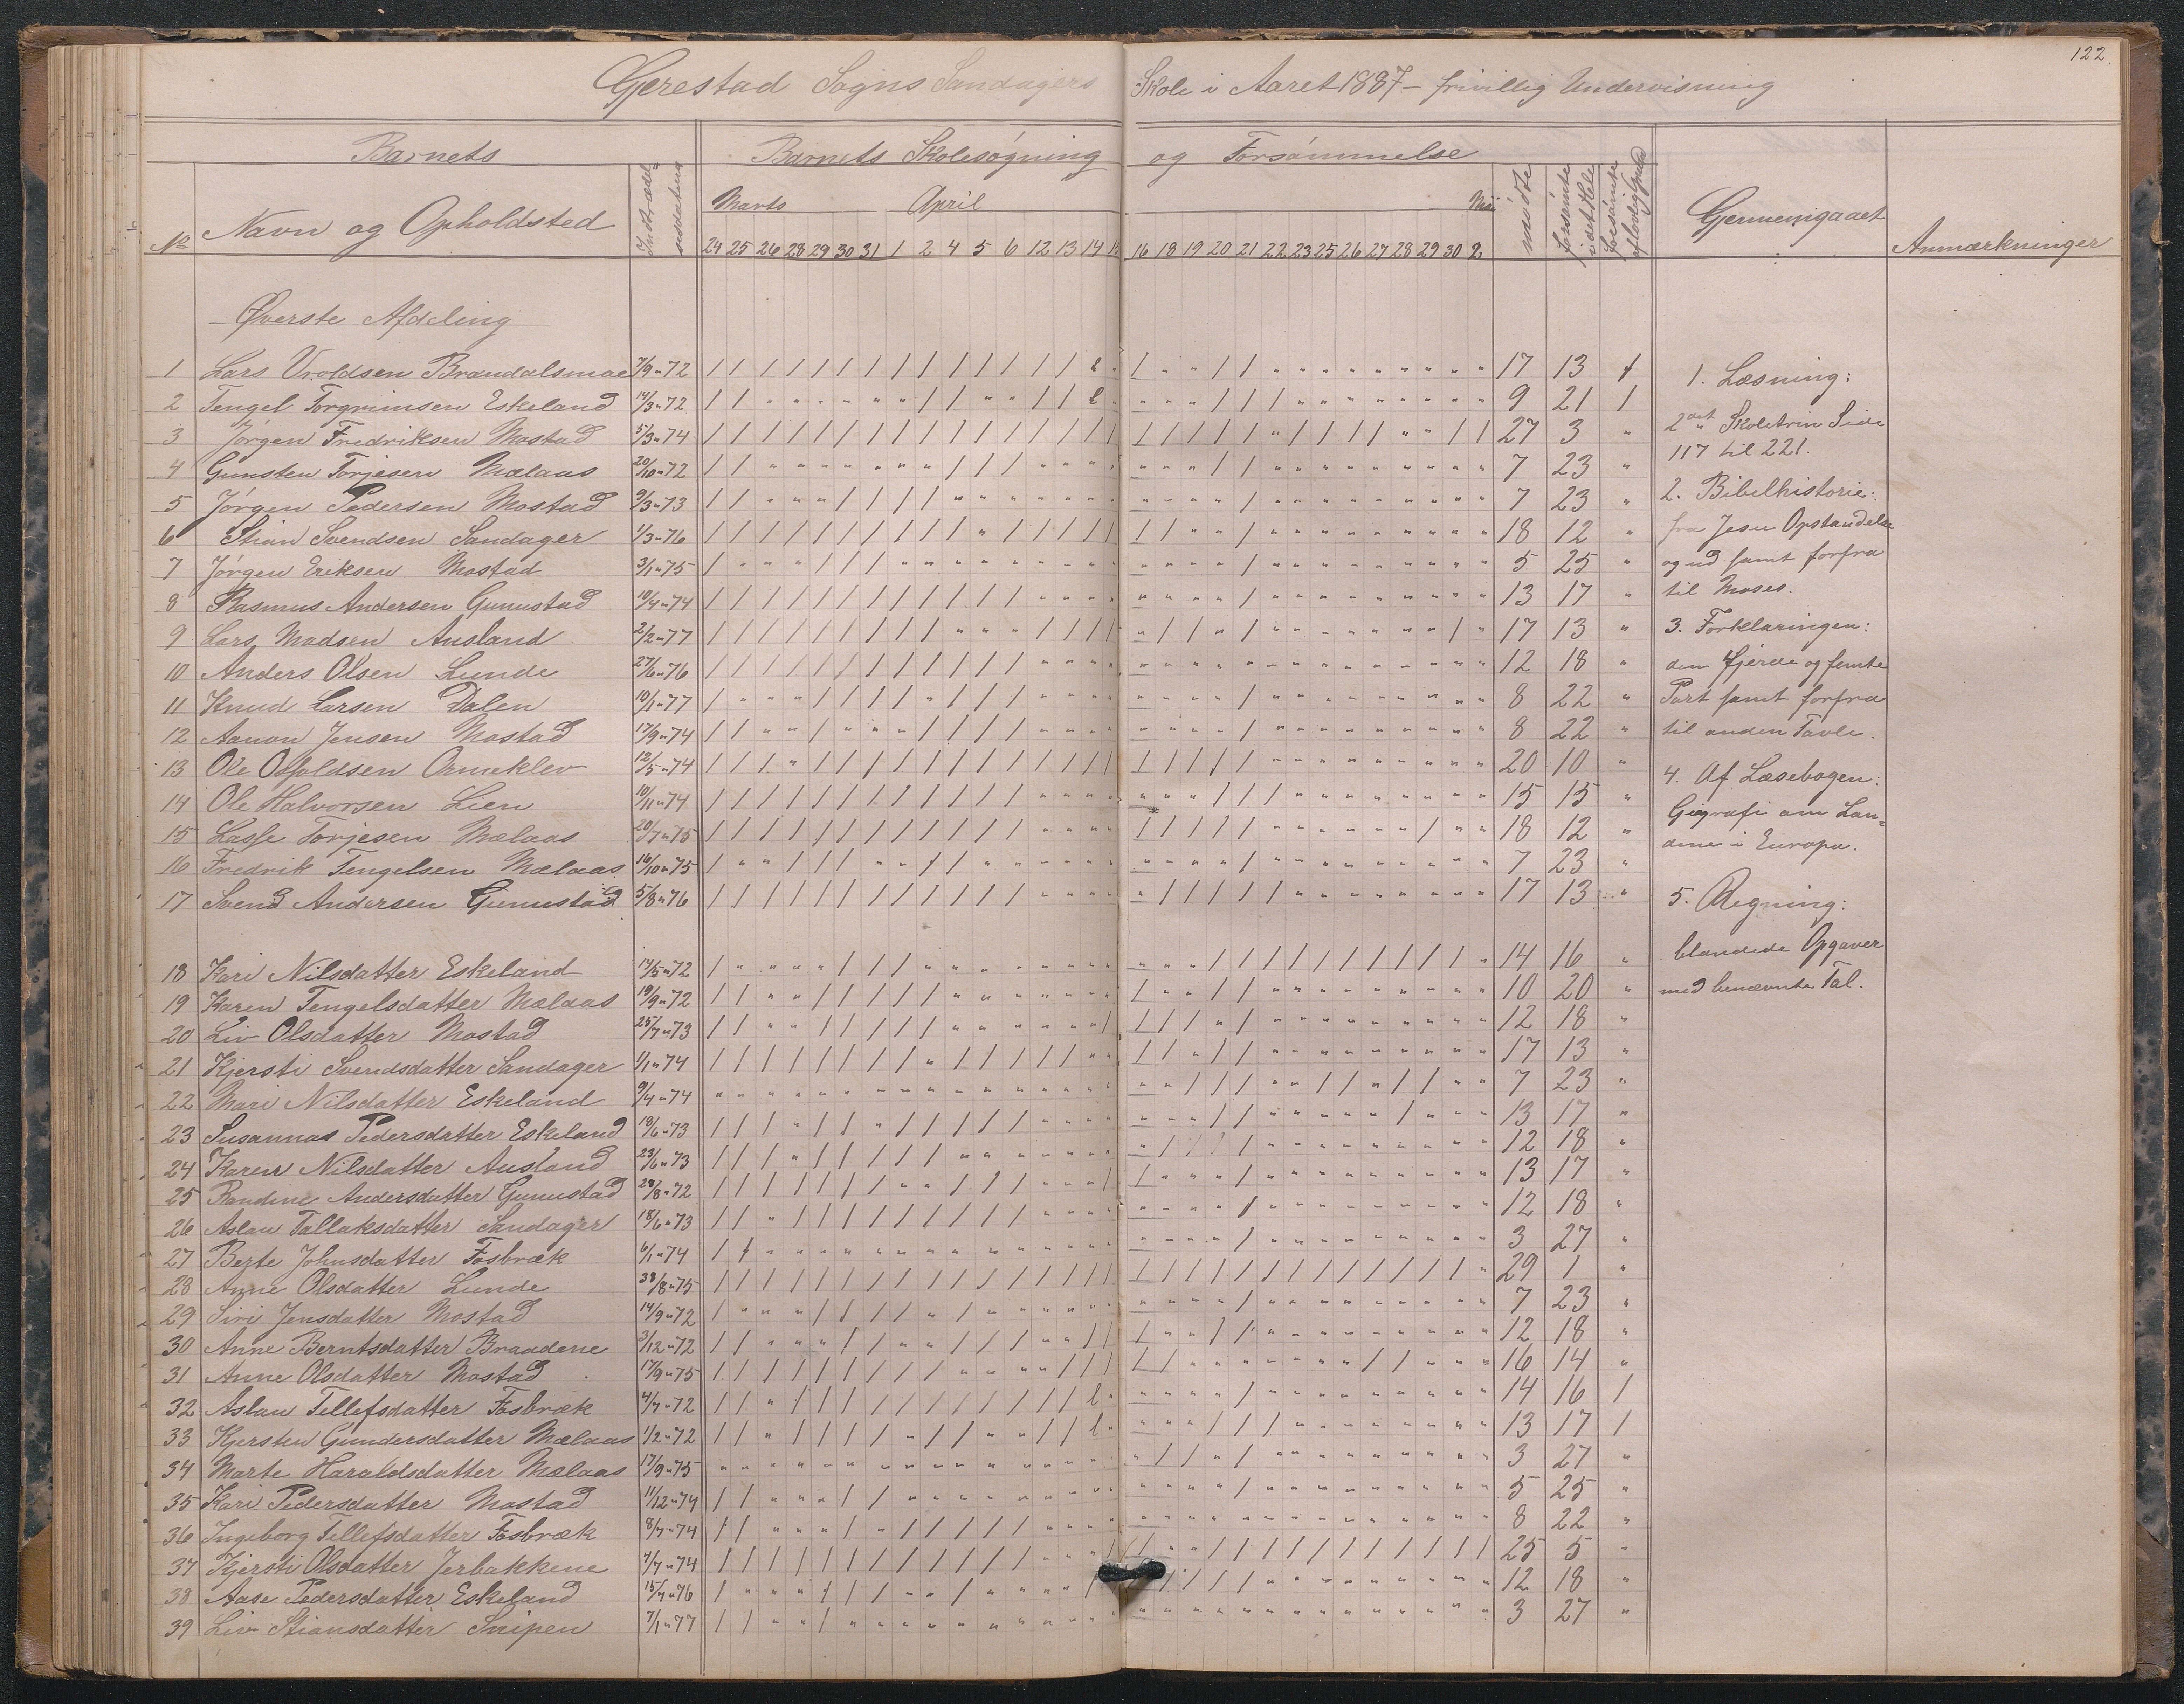 122.
Gjerestad Sogns Sandagers Skole i Aaret 1887 - frivillig Undervisning
Barnets
Barnets Skolesøgning og Forsømmelse
No
Navn og Opholdsted
Marts April Mai
mødte
forsømte i det Hele
forsømte af lovlig Grund
Gjennemgaaet
Anmærkninger
24 25 26 28 29 30 31 1 2 4 5 6 12 13 14 16 18 19 20 21 22 23 25 26 27 28 29 30 2
Øverste Afdeling
1 Lars Vroldsen Brandalsmoe 7/9 " 72 17 13 1
2 Tengel Torgrimsen Eskeland 14/3 " 72 9 21 1
3 Jørgen Fredriksen Mostad 5/3 " 74 27 3 "
4 Gunsten Torjesen Mælaas 20/10 " 72 7 23 "
5 Jørgen Pedersen Mostad 9/3 " 73 7 23 "
6 Stian Svendsen Sandager 1/3 " 76 18 12 "
7 Jørgen Eriksen Mostad 3/1 " 75 5 25 "
8 Rasmus Andersen Gunustad 10/4 " 74 13 17 "
9 Lars Madsen Ausland 2/2 " 77 17 13 "
10 Anders Olsen Lunde 27/6 " 76 12 18 "
11 Knud Larsen Dalen 10/1 " 77 8 22 "
12 Aanon Jensen Mostad 17/9 " 74 8 22 "
13 Ole Osfoldsen Ormeklev 12/5 " 74 20 10 "
14 Ole Halvorsen Lien 10/11 " 74 15 15 "
15 Lasse Torjesen Mælaas 20/7 " 75 18 12 "
16 Fredrik Tengelsen Mælaas 16/10 " 75 7 23 "
17 Svend Andersen Gunustad 5/8 " 76 17 13 "
18 Kari Nilsdatter Eskeland 14/5 " 72 14 16 "
19 Karen Tengelsdatter Mælaas 19/9 " 72 10 20 "
20 Liv Olsdatter Mostad 25/7 " 73 12 18 "
21 Kjersti Svendsdatter Sandager 1/1 " 74 17 13 "
22 Mari Nilsdatter Eskeland 9/4 " 74 7 23 "
23 Susannas Pedersdatter Eskeland 18/6 " 73 13 17 "
24 Karen Nilsdatter Ausland 23/6 " 73 12 18 "
25 Randine Andersdatter Gunustad 28/8 " 72 13 17 "
26 Aslau Tallaksdatter Sandager 18/6 " 73 12 18 "
27 Berte Johnsdatter Fosbræk 6/1 " 74 3 27 "
28 Anne Olsdatter Lunde /8 " 75 29 1 "
29 Siri Jensdatter Mostad 14/9 " 72 7 23 "
30 Anne Berntsdatter Braadene 3/12 " 72 12 18 "
31 Anne Olsdatter Mostad 17/9 " 75 16 14 "
32 Aslau Tellefsdatter Fosbræk 4/7 " 72 14 16 1
33 Kjersten Gundersdatter Mælaas 1/2 " 72 13 17 1
34 Marte Haraldsdatter Mælaas 17/9 " 75 3 27 "
35 Kari Pedersdatter Mostad 11/12 " 74 5 25 "
36 Ingeborg Tellefsdatter Fosbræk 8/7 " 74 8 22 "
37 Kjersti Olsdatter Jerbakkene 7/7 " 74 25 5 "
38 Aase Pedersdatter Eskeland 15/7 " 76 12 18 "
39 Liv Stiansdatter Snipen 7/1 " 77 3 27 "
1. Læsning:
2det Skoletrin Side
117 til 221.
2. Bibelhistorie:
fra Jesu Opstandelse
og ud samt forfra
til Moses.
3. Forklaringen:
den fjerde og femte
Part samt forfra
til anden Tavle.
4. Af Læsebogen:
Geografi om Lan=
dene i Europa.
5. Regning:
blandede Opgaver
med benævnte Tal.